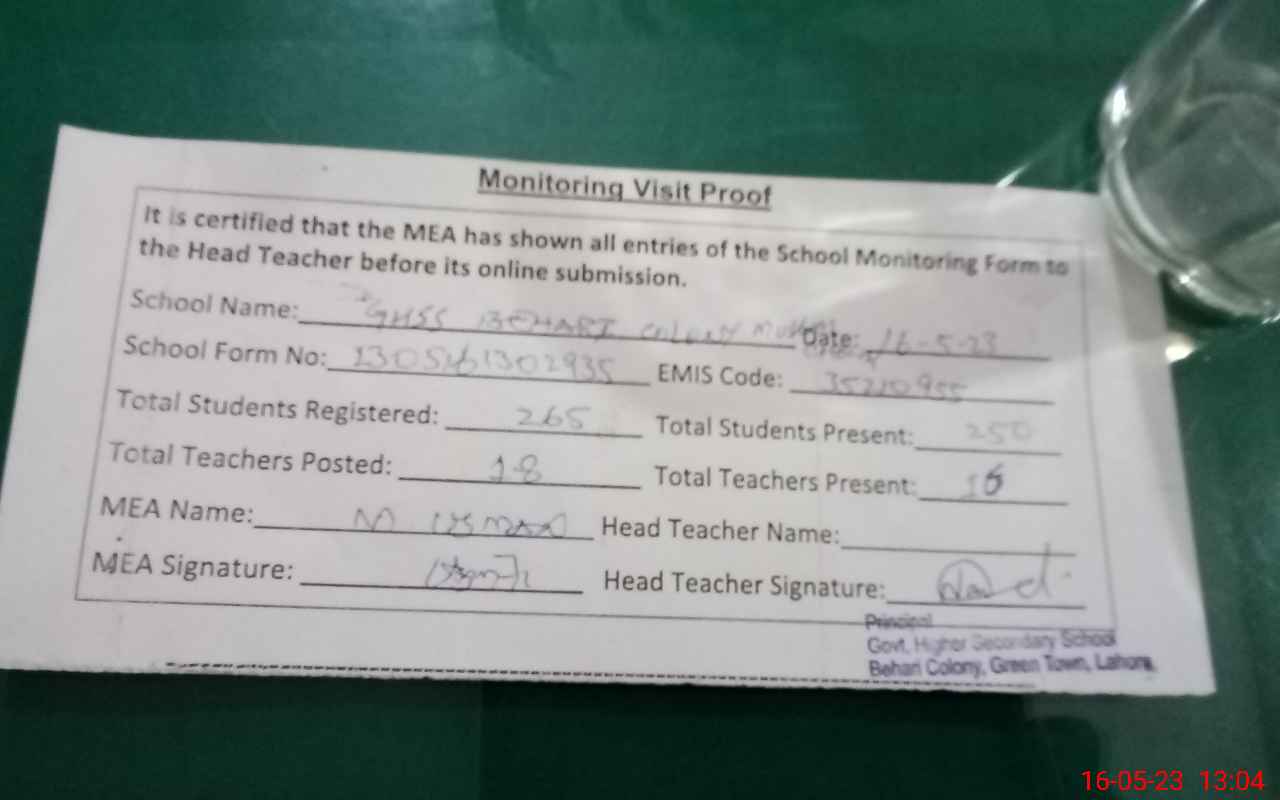 Monitoring Visit Proof
It is certified that the MEA has shown all entries of the School Monitoring Form to
the Head Teacher before its online submission.
School Name: GHSS BEHARI COLONY Date: 16-5-23
School Form No: EMIS Code: 35210955
Total Students Registered: 265 Total Students Present: 250
Total Teachers Posted: 18 Total Teachers Present:
MEA Name: M USMAN Head Teacher Name:
MEA Signature: Head Teacher Signature:
Principal
Govt. Higher Secondary School
Behari Colony, Green Town, Lahore
16-05-23 13:04